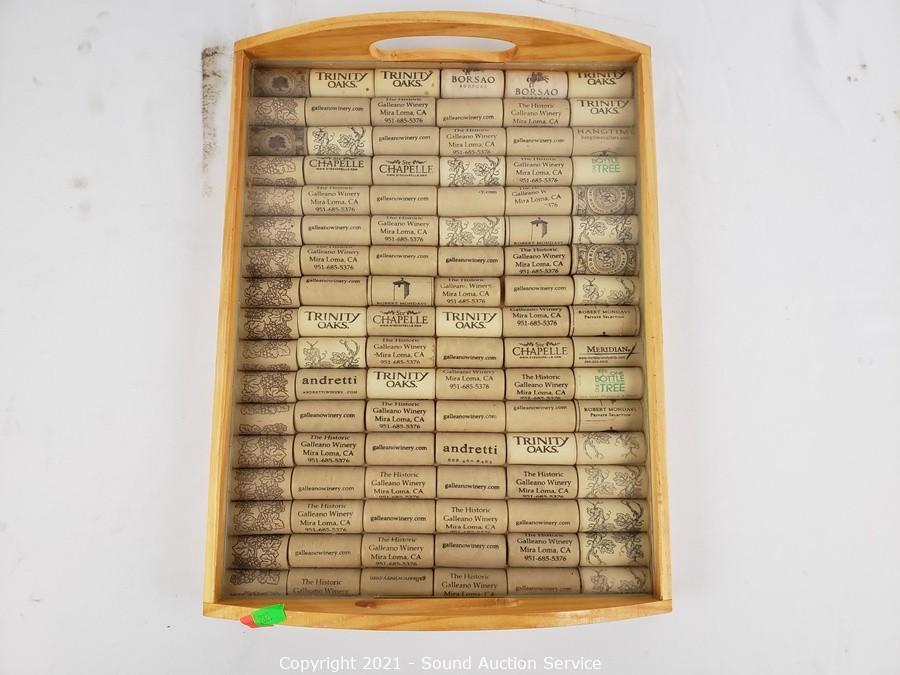 TRINITY OAKS.
TRINITY OAKS.
BORSAO
BODEGAS
BORSAO
TRINITY OAKS.
galleanowinery.com
The Historic
Galleano Winery
Mira Loma, CA
951-685-5376
galleanowinery.com
The Historic
Galleano Winery
Mira Loma, CA
TRINITY
OAKS.
galleanowinery.com
The Historic
Galleano Winery
Mira Loma, CA
951-685-5376
galleanowinery.com
HANGTIME
Ste
CHAPELLE
Ste
CHAPELLE
Galleano Winery
Mira Loma, CA
951-685-5376
BOTTLE
TREE
Galleano Winery
Mira Loma, CA
951-685-5376
galleanowinery.com
galleanowinery.com
Galleano Winery
Mira Loma, CA
951-685-5376
galleanowinery.com
ROBERT MONDAVI
The Historic
Galleano Winery
Mira Loma, CA
951-685-5376
galleanowinery.com
galleanowinery.com
The Historic
Galleano Winery
Mira Loma, CA
951-685-5376
galleanowinery.com
ROBERT MONDAVI
The Historic
Mira Loma, CA
951-685-5376
galleanowinery.com
TRINITY
OAKS.
Ste
CHAPELLE
TRINITY
OAKS.
Galleano Winery
Mira Loma, CA
951-685-5376
ROBERT MONDAVI
Private Selection
The Historic
Galleano Winery
Mira Loma, CA
951-685-5376
galleanowinery.com
Ste
CHAPELLE
MERIDIAN
andretti
ANDRETTIWINERY.COM
TRINITY
OAKS.
Galleano Winery
Mira Loma, CA
951-685-5376
The Historic
Galleano Winery
Mira Loma, CA
ONE
BOTTLE
TREE
galleanowinery.com
The Historic
Galleano Winery
Mira Loma, CA
951-685-5376
galleanowinery.com
galleanowinery.com
ROBERT MONDAVI
Private Selection
The Historic
Galleano Winery
Mira Loma, CA
951-685-5376
galleanowinery.com
andretti
TRINITY
OAKS.
galleanowinery.com
The Historic
Galleano Winery
Mira Loma, CA
galleanowinery.com
The Historic
Galleano Winery
Mira Loma, CA
The Historic
Galleano Winery
Mira Loma, CA
951-685-5376
galleanowinery.com
The Historic
Galleano Winery
Mira Loma, CA
galleanowinery.com
galleanowinery.com
The Historic
Galleano Winery
Mira Loma, CA
951-685-5376
galleanowinery.com
The Historic
Galleano Winery
Mira Loma, CA
951-685-5376
The Historic
Galleano Winery
galleanowinery.com
The Historic
Galleano Winery
Mira Loma, CA
galleanowinery.com
Copyright 2021 - Sound Auction Service